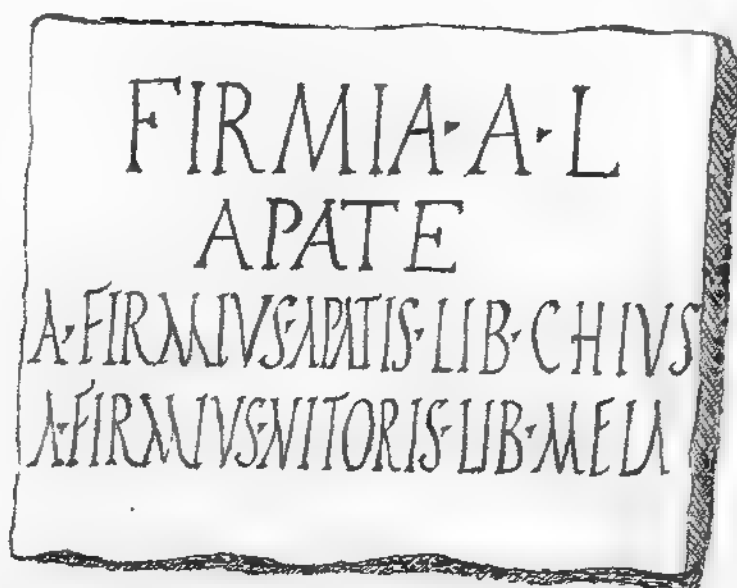 FIRMIA·A·L
APATE
A·FIRMIVS·APATIS·LIB·CHIVS
A·FIRMIVS·NITORIS·LIB·MELA